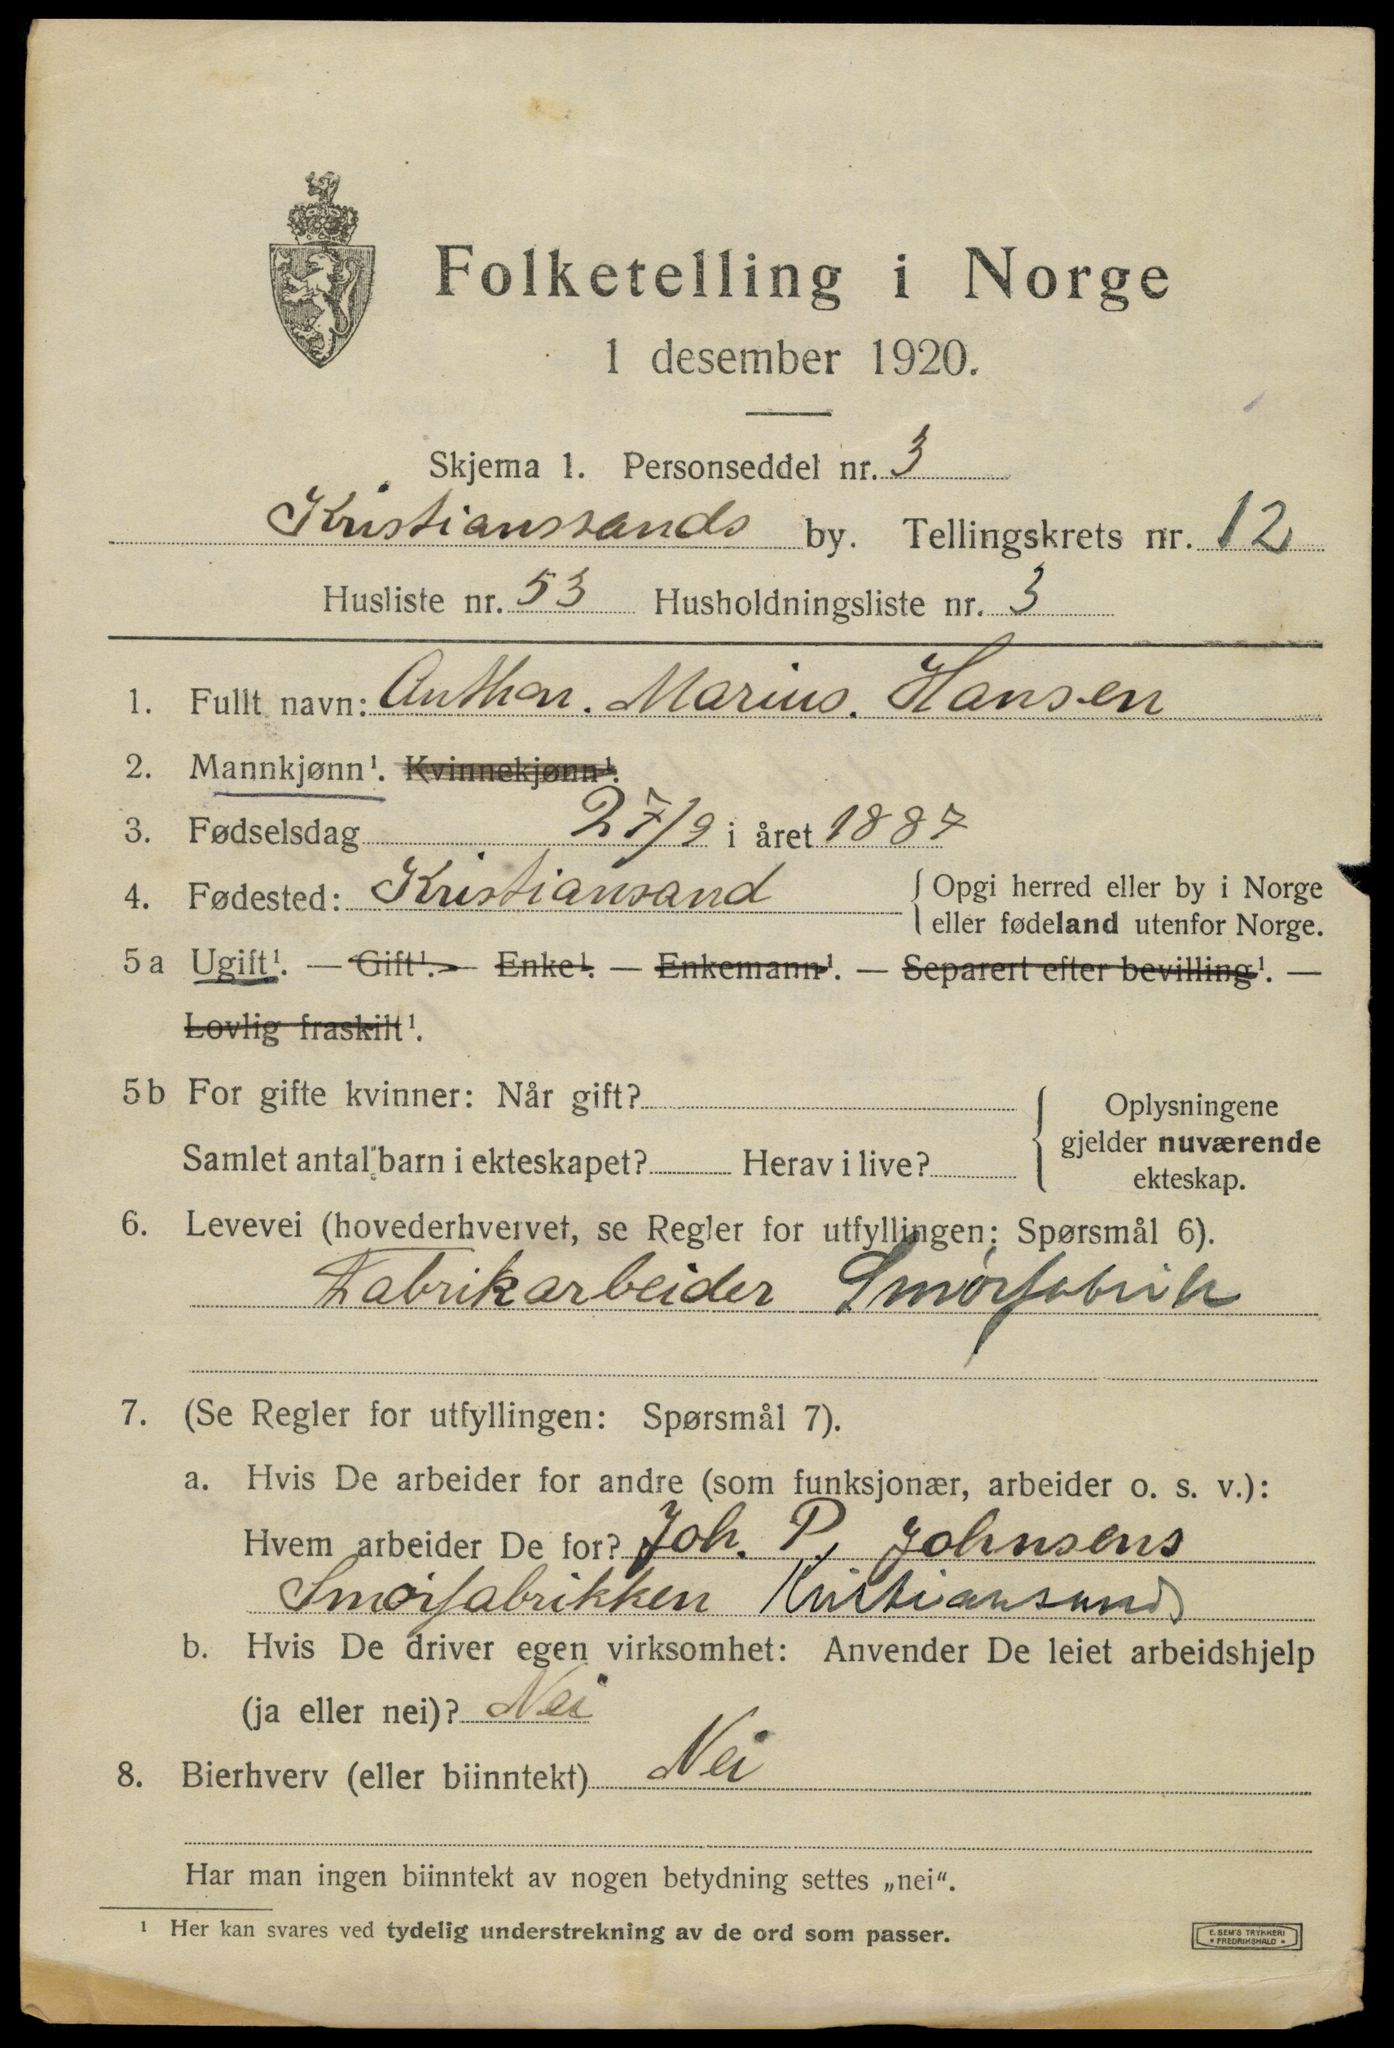 Folketelling i Norge
1 desember 1920.
Skjema 1. Personseddel nr. 3
Kristianssands by. Tellingskrets nr. 12
Husliste nr. 53 Husholdningsliste nr. 3
1. Fullt navn: Anthon. Marius. Hansen
2. Mannkjønn¹. Kvinnekjønn¹.
3. Fødselsdag 27/9 i året 1887
4. Fødested: Kristiansand { Opgi herred eller by i Norge
eller fødeland utenfor Norge.
5 a Ugift¹. — Gift¹. — Enke¹. — Enkemann¹. — Separert efter bevilling¹. —
Lovlig fraskilt¹.
5 b For gifte kvinner: Når gift?
Samlet antal barn i ekteskapet? Herav i live?
{ Oplysningene
gjelder nuværende
ekteskap.
6. Levevei (hovederhvervet, se Regler for utfyllingen: Spørsmål 6).
Fabrikarbeider Smørfabrik
7. (Se Regler for utfyllingen: Spørsmål 7).
a. Hvis De arbeider for andre (som funksjonær, arbeider o. s. v.):
Hvem arbeider De for? Joh. P. Johnsens
Smørfabrikken Kristiansund
b. Hvis De driver egen virksomhet: Anvender De leiet arbeidshjelp
(ja eller nei)? Nei
8. Bierhverv (eller biinntekt) Nei
Har man ingen biinntekt av nogen betydning settes „nei“.
¹ Her kan svares ved tydelig understrekning av de ord som passer.
E. SEM'S TRYKKERI
* FREDRIKSHALD *